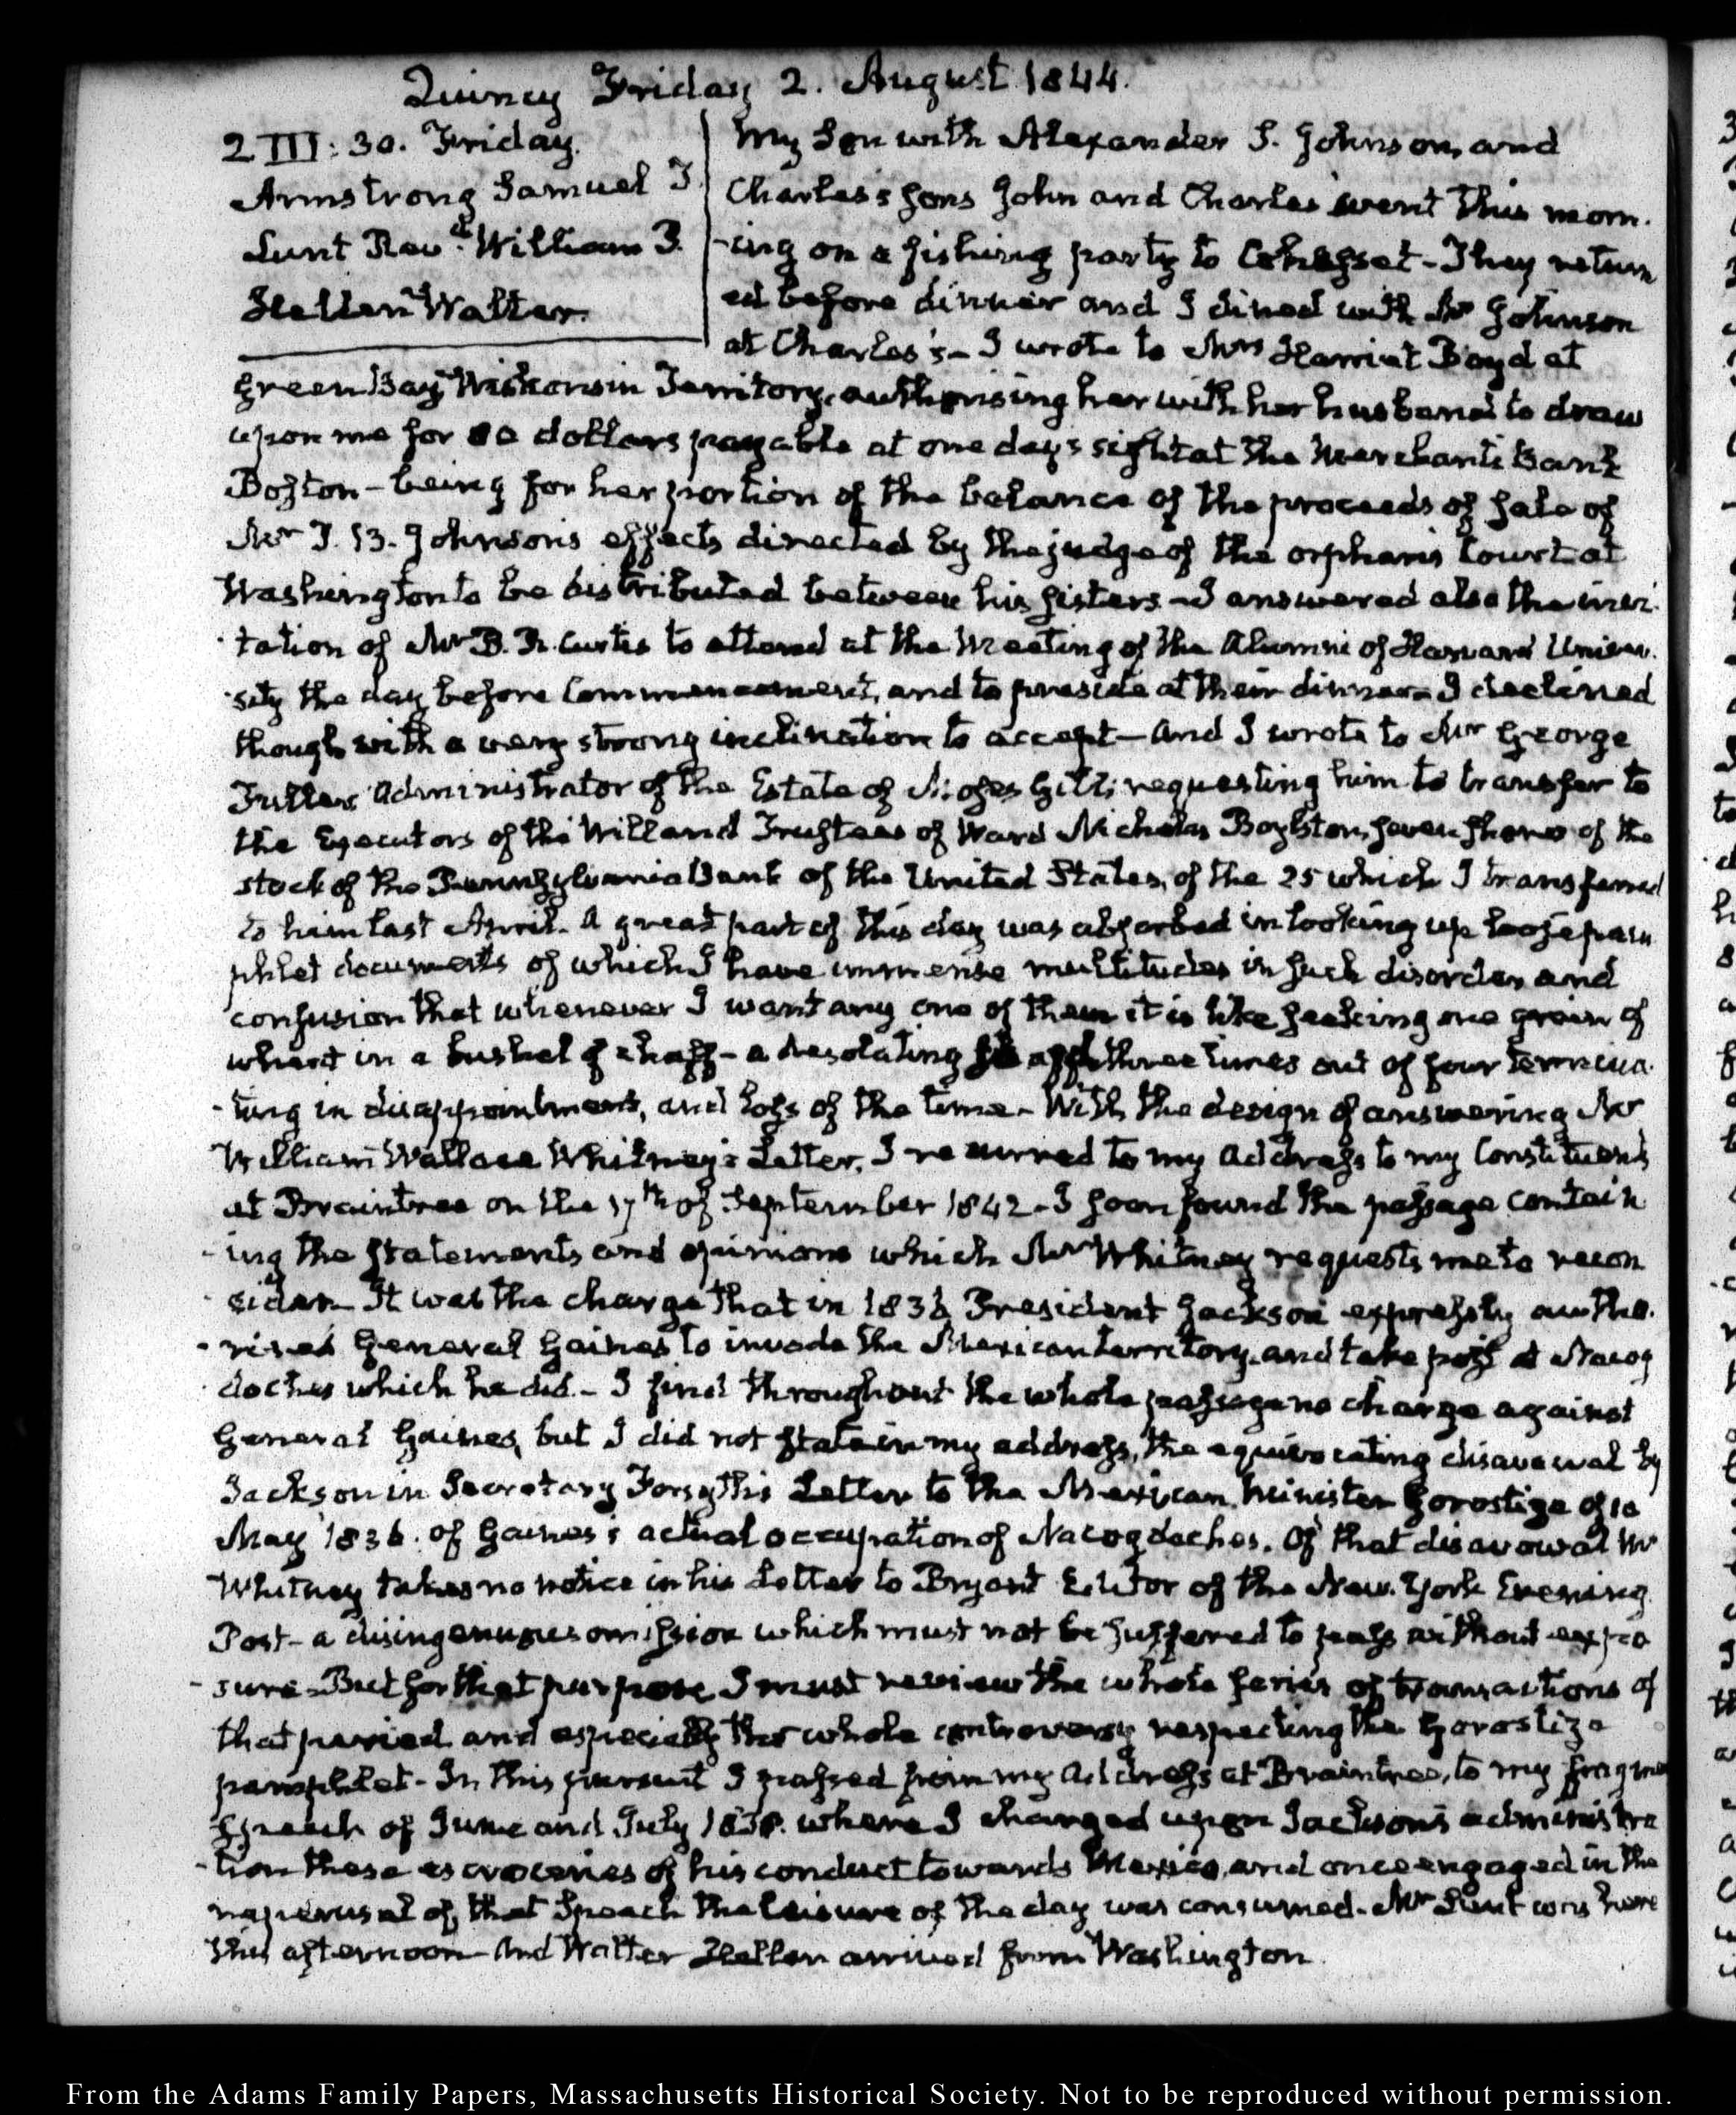 Quincy Friday 2. August 1844.
2 III: 30. Friday.
Armstrong Samuel T
Lunt Revd. William P.
Hellen Walter.
My Son with Alexander S. Johnson, and
Charles's sons John and Charles went this morn-
-ing on a fishing party to Cohasset - They return
ed before dinner and I dined with Mr Johnson
at Charles's - I wrote to Mrs Harriet Boyd at
Green Bay Wiskonsin Territory, authorising her with her husband to draw
upon me for 80 dollars payable at one day's sight at the Merchants Bank
Boston - being for her portion of the balance of the proceeds of sale of
Mr T. B. Johnson's effects directed by the judge of the orphan's Court at
Washington to be distributed between his sisters - I answered also the invi-
tation of Mr B. R. Curtis to attend at the Meeting of the Alumni of Harvard Univer-
sity the day before Commencement, and to preside at their dinner - I declined
though with a very strong inclination to accept - And I wrote to Mr George
Fuller Administrator of the Estate of Moses Gill, requesting him to transfer to
the Executors of the Will and Trustees of Ward Nicholas Boylston, seven shares of the
stock of the Pennsylvania Bank of the United States, of the 25 which I transferred
to him last April. A great part of this day was absorbed in looking up loose pam
phlet documents of which I have immense multitudes in such disorder and
confusion that whenever I want any one of them it is like seeking one grain of
wheat in a bushel of chaff - a desolating three times out of four termina-
-ting in disappointment, and loss of the time - With the design of answering Mr
William Wallace Whitney's Letter, I recurred to my Address to my Constituents
at Braintree on the 17th of September 1842 - I soon found the passage contain
-ing the statements and opinions which Mr Whitney requests me to recon
sider - It was the charge that in 1836 President Jackson expressly autho-
-rised General Gaines to invade the Mexican territory, and take post at Nacog
doches which he did - I find throughout the whole passage no charge against
General Gaines, but I did not state in my address, the equivocating disavowal by
Jackson in Secretary Forsyth's Letter to the Mexican Minister Gorostiza of 10
May 1836. of Gaines's actual occupation of Nacogdoches. Of that disavowal Mr
Whitney takes no notice in his Letter to Bryant Editor of the New-York Evening
Post - a disingenuous omission which must not be suffered to pass without expo
-sure - But for that purpose I must review the whole series of transactions of
that period and especially the whole controversy respecting the Gorostiza
pamphlet - In this pursuit I passed from my Address at Braintree, to my fragment
Speech of June and July 1838. where I charged upon Jackson's administra
-tion these of his conduct towards Mexico, and once engaged in the
reperusal of that Speach the leisure of the day was consumed - Mr Lunt was here
this afternoon - And Walter Hellen arrived from Washington
From the Adams Family Papers, Massachusetts Historical Society. Not to be reproduced without permission.